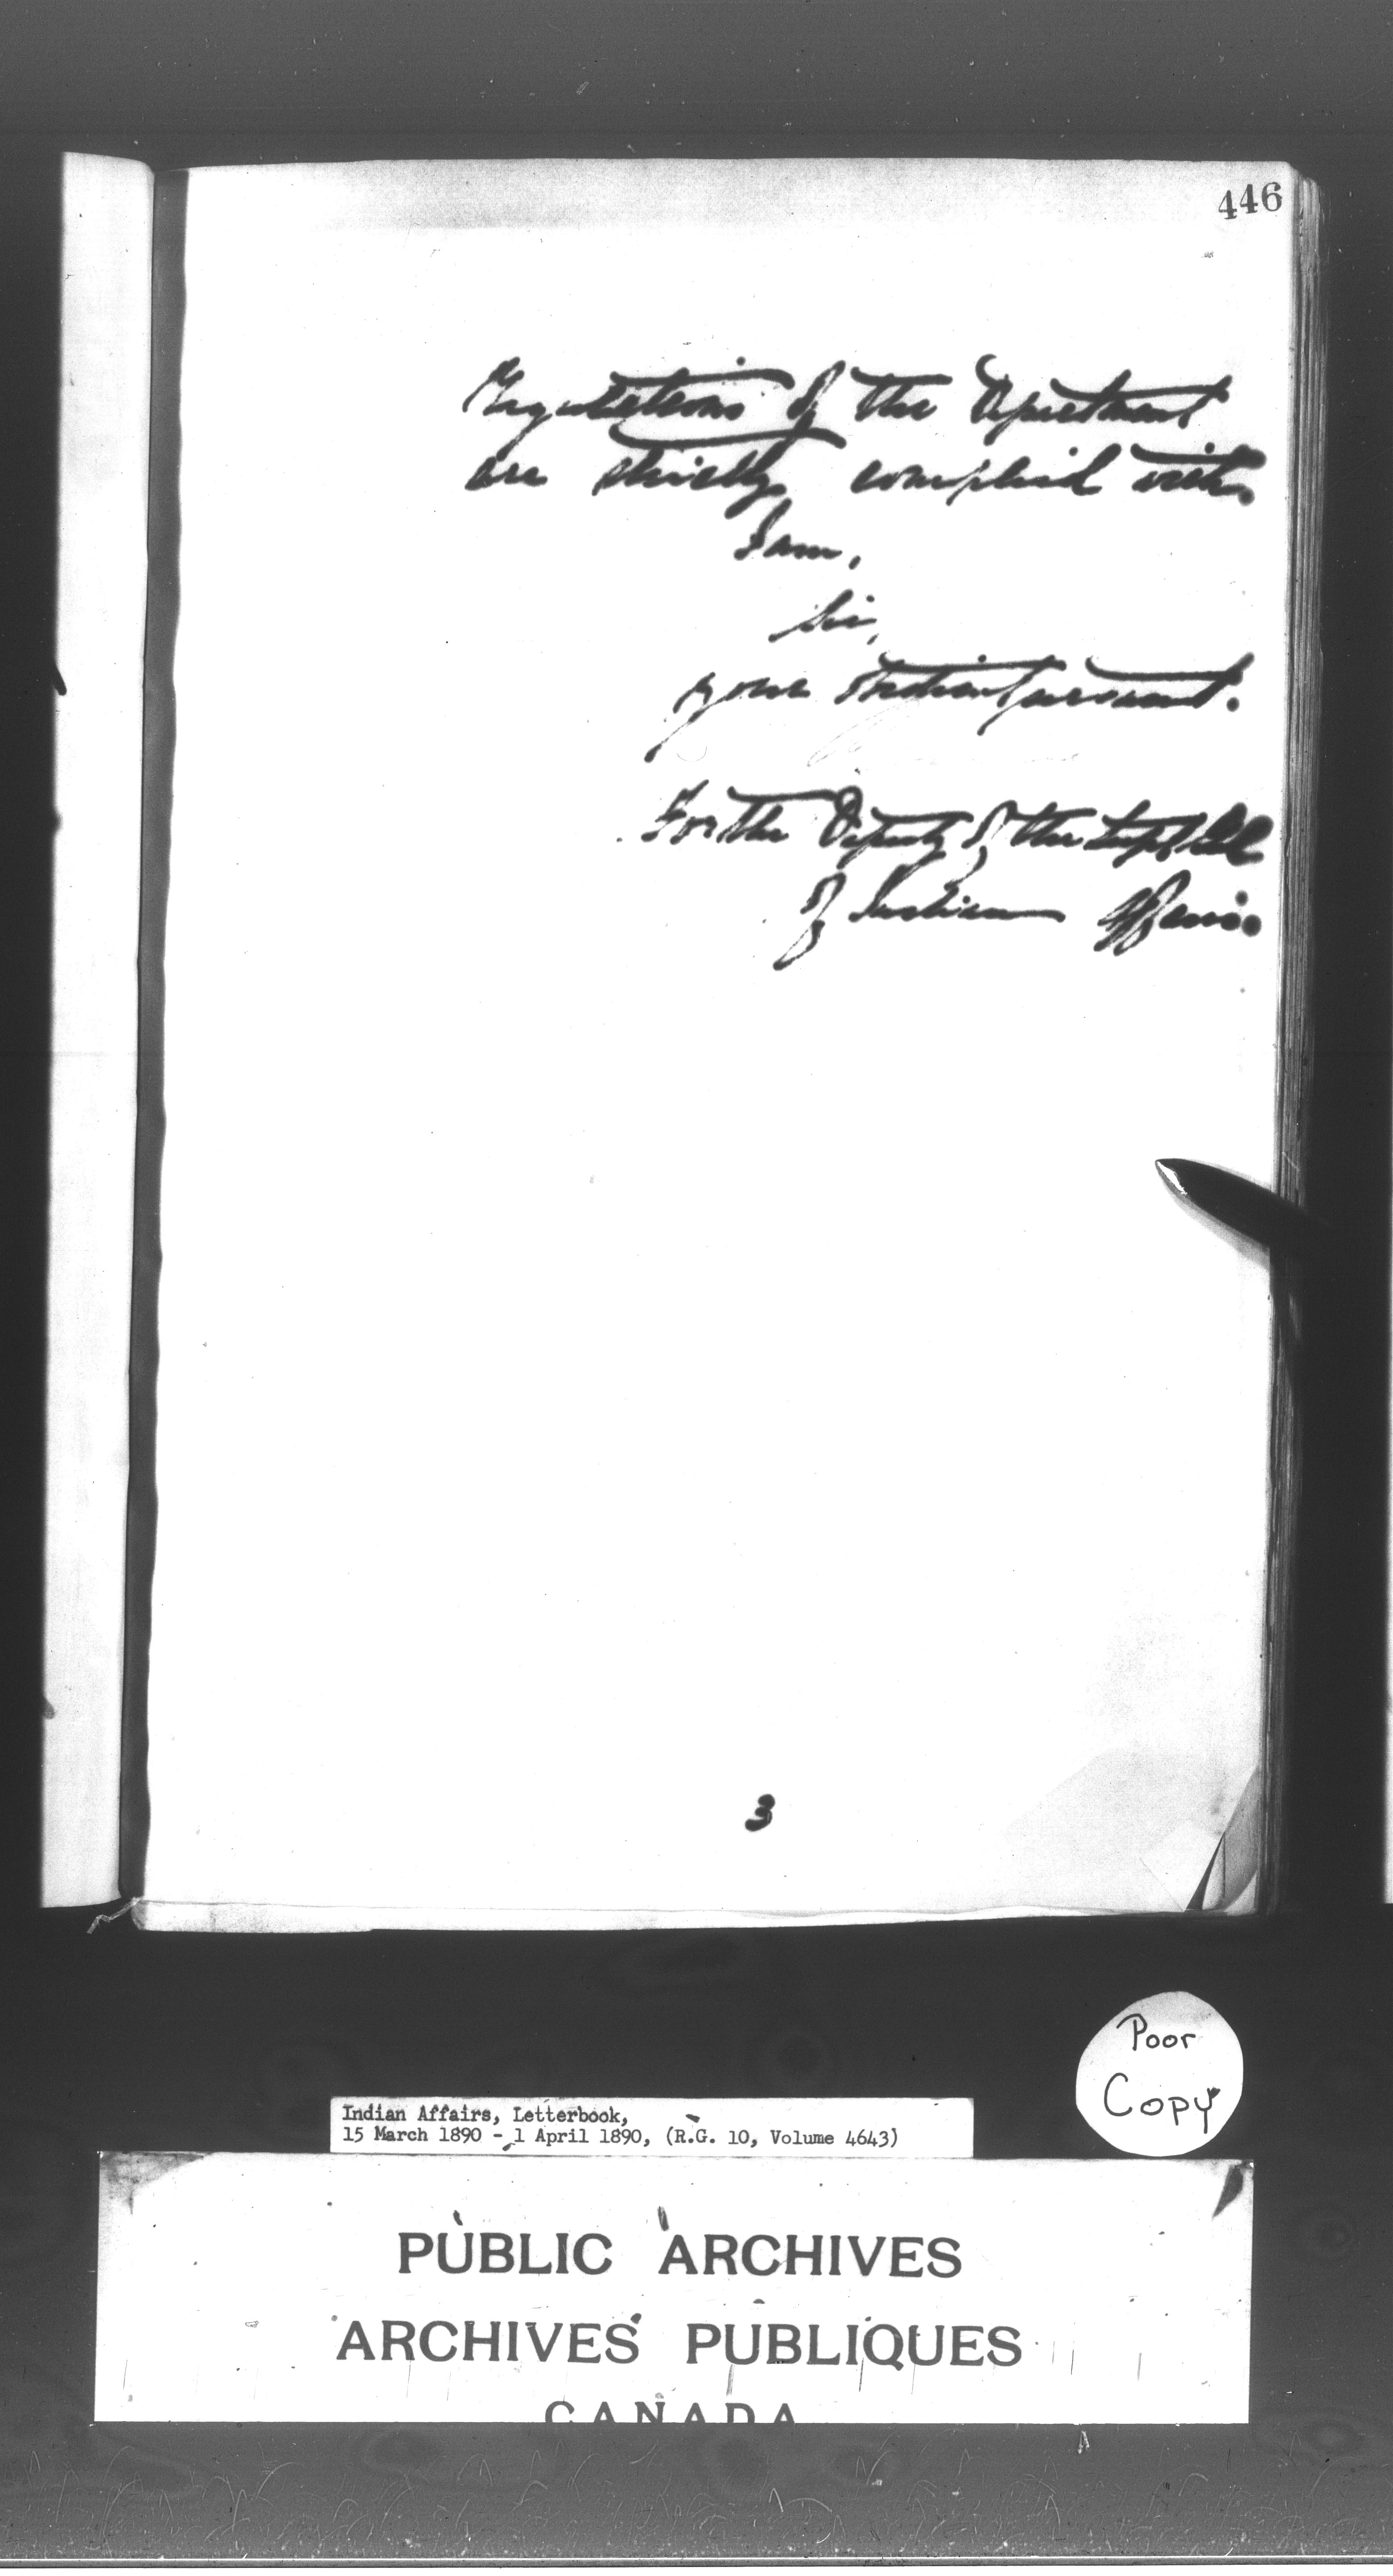 446
Regulations of the Department
are strictly complied with
I am,
Sir,
your obedient servant.
For the Deputy of the Supt Genl
of Indian Affairs
3
Poor
Copy
Indian Affairs, Letterbook,
15 March 1890 - 1 April 1890, (R.G. 10, Volume 4643)
PUBLIC ARCHIVES
ARCHIVES PUBLIQUES
CANADA